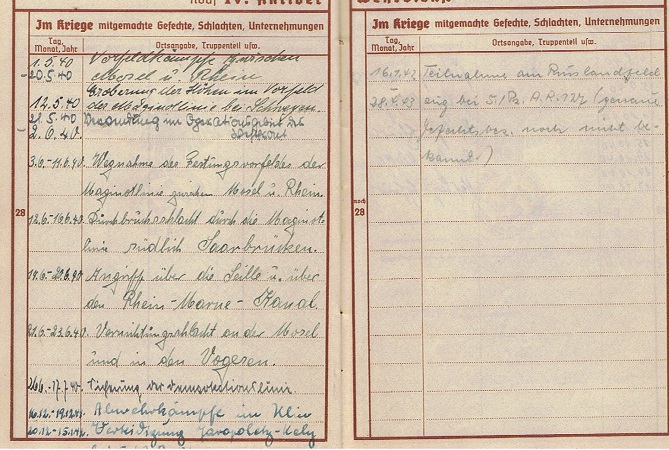 IV. Aktiver
Wehrdienst
Im Kriege mitgemachte Gefechte, Schlachten, Unternehmungen
Tag, Monat, Jahr
Ortsangabe, Truppenteil usw.
1.5.40 Vorfeldkämpfe zwischen
-20.5.40 Mosel u. Rhein
Eroberung der Höhen im Vorfeld
12.5.40 der Maginotlinie bei
21.5.40 Verwendung im Operationsgebiet des
- 2.6.40
3.6.-11.6.40. Wegnahme des Festungsvorfeldes der
Maginotlinie zwischen Mosel u. Rhein.
28
12.6.-18.6.40. Durchbruchschlacht durch die Maginot-
linie südlich Saarbrücken.
19.6.-20.6.40 Angriff über die Seille u. über
den Rhein-Marne-Kanal.
21.6.-23.6.40. Vernichtungsschlacht an der Mosel
und in den Vogesen.
24.6.-17.7.40. Sicherung der Demarkationslinie
16.12.-19.12.41. Abwehrkämpfe im Klin
20.12.-15.1.42. Verteidigung Jaropoletz-
Im Kriege mitgemachte Gefechte, Schlachten, Unternehmungen
Tag, Monat, Jahr
Ortsangabe, Truppenteil usw.
16.1.42 Teilnahme am Russlandfeld
28. .43 zug bei 5./Pz. A.R. 127 (genaue
Gefechtsbez. noch nicht be-
kannt.)
noch
28